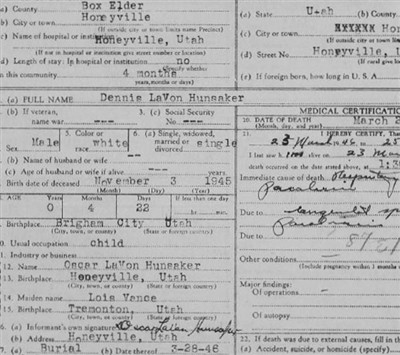 (a) County Box Elder
(b) City or town Honeyville
(If outside city or town limits write Precinct)
(c) Name of hospital or
Honeyville, Utah
(If not in hospital or institution give street number or location)
(d) Length of stay: In hospital or institution no
(Specify whether
in this community. 4 months
(a) State Utah (b) County
(c) City or town XXXXX Hon
(If outside city or town
(d) Street No Honeyville, U
(If rural give
(e) If foreign born, how long in U. S. A.
(a) FULL NAME Dennis LaVon Hunsaker
(b) If veteran,
name war ---
(c) Social Security
No. ---
Sex Male
5. Color or
race white
6. (a) Single, widowed,
married or
divorced single
(b) Name of husband or wife --
(c) Age of husband or wife if alive --- years
Birth date of deceased November 3 1945
(Month) (Day) (Year)
AGE Years Months Days If less than one day
0 4 22 hr. min.
Birthplace Brigham City Utah
(City, town, or county) (State or foreign country)
10. Usual occupation child
11. Industry or business
12. Name Oscar LaVon Hunsaker
13. Birthplace Honeyville, Utah
(City, town, or county) (State or foreign country)
14. Maiden name Lois Vance
15. Birthplace Tremonton, Utah
(City, town, or county) (State or foreign country)
16. (a) Informant's own signature Oscar LaVon Hunsaker
(b) Address Honeyville, Utah
(a) Burial (b) Date thereof 3-28-46
MEDICAL CERTIFICATION
20. DATE OF DEATH March 2
(Month, day, and year)
21. I HEREBY CERTIFY, Tha
25 March 1946 to 25
I last saw h alive on 25 Mar
death occurred on the date stated above, at 1:3
Immediate cause of death Respiratory
Paralysis
Due to
Due to
Other conditions
(Include pregnancy within 3 months
Major findings:
Of operations -
Of autopsy
22. If death was due to external causes, fill in th
(a) Accident, suicide, or homicide (specify)